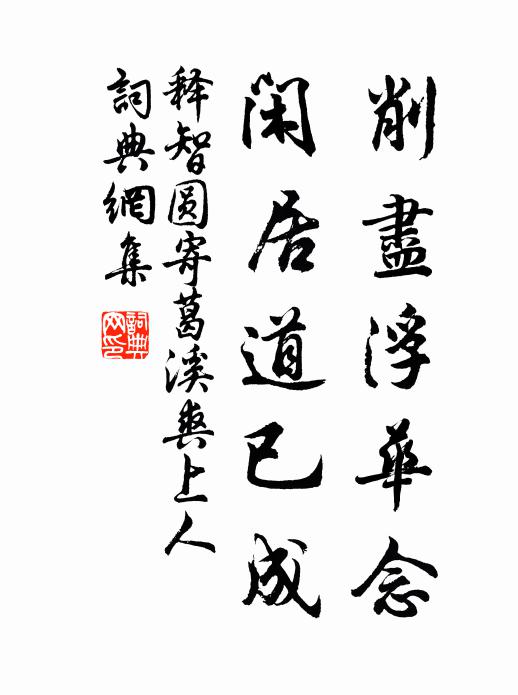 削盡浮華念
閑居道已成
释智圆寄葛溪爽上人
詞典網集
詞典網印